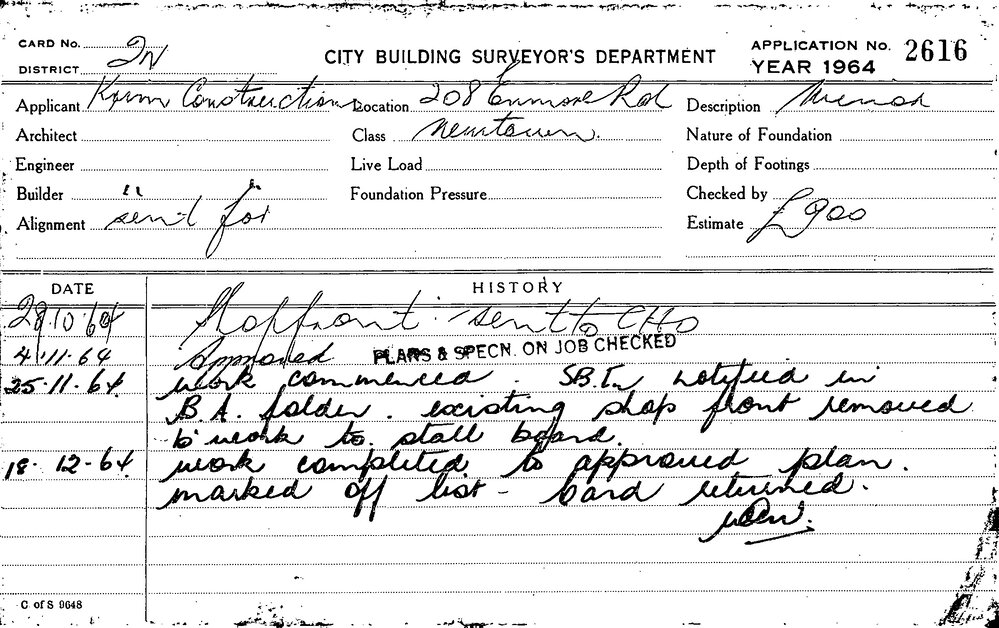 CARD No. 2N
CITY BUILDING SURVEYOR'S DEPARTMENT
APPLICATION No. 2616
DISTRICT
YEAR 1964
Applicant Krim Constructions Location 208 Enmore Rd Description Minor
Architect Class Newtown. Nature of Foundation
Engineer Live Load Depth of Footings
Builder " " Foundation Pressure Checked by
Alignment sent for Estimate £900
DATE HISTORY
29.10.64 Shopfront sent to CHO
4.11.64 Approved PLANS & SPECN. ON JOB CHECKED
25.11.64 work commenced. notified in
B.A. folder. existing shop front removed
b'work to stall board.
18.12.64 work completed to approved plan.
marked off list - card returned.
C of S 9648